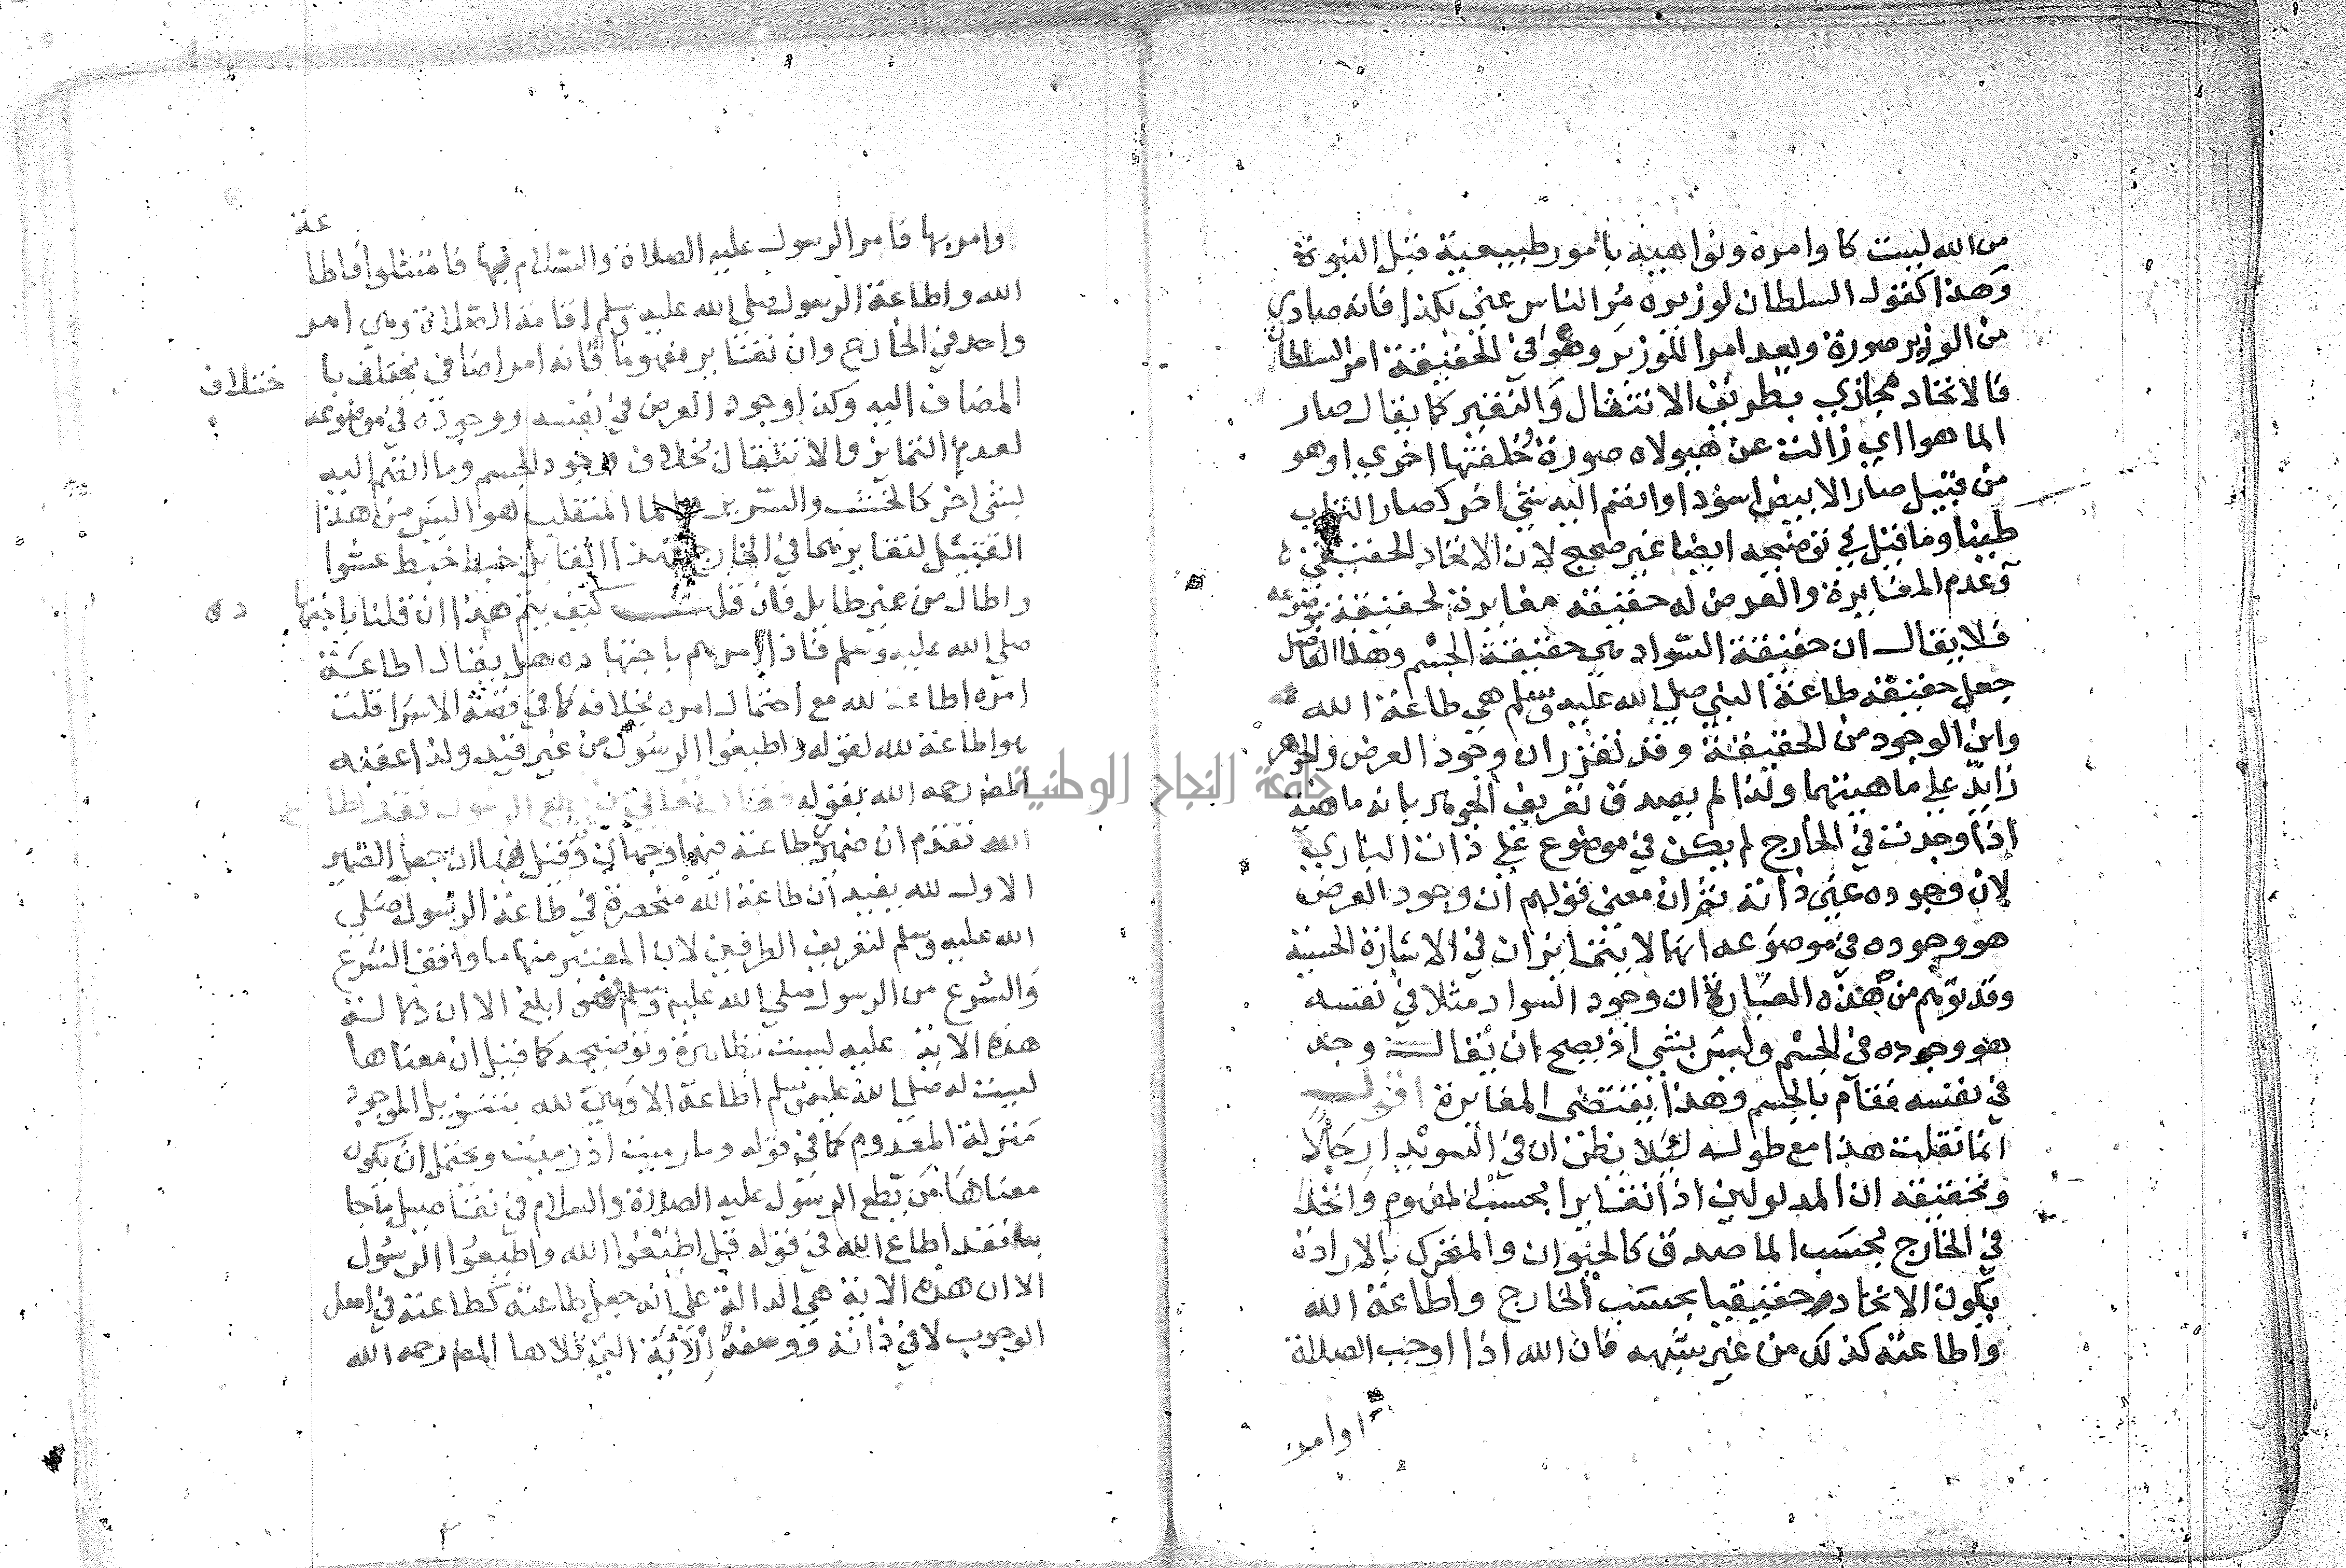 من الله ليست كاوامره ونواهيه بامور طبيعية قبل النبوة
وهذا كقول السلطان لوزيره مر الناس عني بكذا فانه صادر
من الوزير صورة ويعد امرا للوزير وهو في الحقيقة امر السلطان
فالاتحاد مجازي بطريق الانتقال والتغير كما يقال صار
الما هوا اي زالت عن هيولاه صورة خلفتها اخري او هو
من قبيل صار الابيض اسود او انضم اليه شي اخر كصار التراب
طينا وما قيل في توضيحه ايضا غير صحيح لان الاتحاد الحقيقي
وعدم المغايرة والعرض له حقيقة مغايرة لحقيقة موضوعه
فلا يقال ان حقيقة السواد هي حقيقة الجسم وهذا القايل
جعل حقيقة طاعة النبي صلي الله عليه وسلم هي طاعة الله
واين الوجود من الحقيقة وقد تقرر ان وجود العرض والجوهر
زايد علي ماهيتهما ولذا لم يصدق تعريف الجوهر بانه ماهية
اذا وجدت في الخارج لم يكن في موضوع علي ذات الباري
لان وجوده عين ذاته ثم ان معني قولهم ان وجود العرض
هو وجوده في موضوعه انهما لا يتمايزان في الاشارة الحسية
وقد توهم من هذه العبارة ان وجود السواد مثلا في نفسه
هو وجوده في الجسم وليس بشي اذ يصح ان يقال وجد
في نفسه فقام بالجسم وهذا يقتضي المغايرة اقول
انما نقلت هذا مع طوله ليلا يظن ان في السويدا رجالا
وتحقيقه ان المدلولين اذا تغايرا بحسب المفهوم واتحدا
في الخارج بحسب الماصدق كالحيوان والمتحرك بالارادة
يكون الاتحاد حقيقيا بحسب الخارج واطاعة الله
واطاعته كذلك من غير شبهه فان الله اذا اوجب الصلاة
اوامر
وامر بها فامر الرسول عليه الصلاة والسلام بها فامتثلوا فاطا
عة
الله واطاعة الرسول صلي الله عليه وسلم اقامة الصلاة وهي امر
واحد في الخارج وان تغاير مفهوما فانه امر اضافي يختلف با
ختلاف
المضاف اليه وكذا وجود العرض في نفسه ووجوده في موضوعه
لعدم التمايز والانتقال بخلاف وجود الجسم وما انضم اليه
لشي اخر كالخشب والسرير والما المنقلب هوا ليس من هذا
القبيل لتغايرهما في الخارج فهذا القايل خبط خبط عشوا
واطال من غير طايل فان قلت كيف يتم هذا ان قلنا باجتها
ده
صلي الله عليه وسلم فاذا امرهم باجتهاده هل يقال اطاعة
امره اطاعة لله مع احتمال امره بخلافه كما في قصة الاسرا قلت
هو اطاعة لله لقوله واطيعوا الرسول من غير قيد ولذا عقبه
المصر رحمه الله بقوله فقال تعالي من يطع الرسول فقد اطاع
الله تقدم ان ضمير طاعته فيها وجهان وقيل هنا ان جعل الضمير
الاول لله يفيد ان طاعة الله منحصرة في طاعة الرسول صلي
الله عليه وسلم لتعريف الطرفين لان المعتبر منها ما وافق الشرع
والشرع من الرسول صلي الله عليه وسلم فهو ابلغ الا ان دلالة
هذه الاية عليه ليست بظاهرة وتوضيحه كما قيل ان معناها
ليست له صلي الله عليه وسلم اطاعة الا وهي لله بتنزيل الموجود
منزلة المعدوم كما في قوله وما رميت اذ رميت ويحتمل ان يكون
معناها من يطع الرسول عليه الصلاة والسلام في تفاصيل ما جا
به فقد اطاع الله في قوله قل اطيعوا الله واطيعوا الرسول
الا ان هذه الاية هي الدالة علي انه جعل طاعته كطاعته في اصل
الوجوب لا في ذاته ووصفه الاية التي تلاها المصر رحمه الله
جامعة النجاح الوطنية